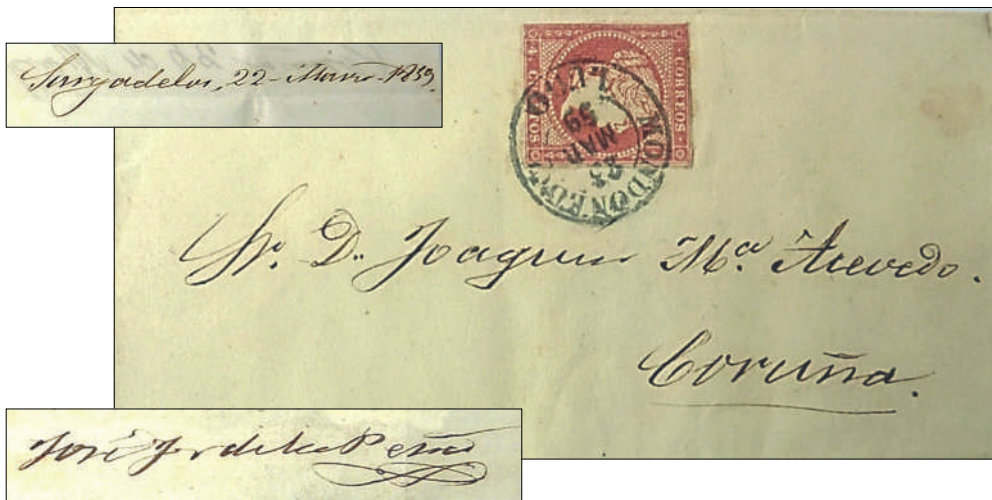 Sargadelos, 22 - Marzo - 1859.
CORREOS
4 CUARTOS
MONDOÑEDO
LUGO
23
MAR
59
Sr. D. Joaquin Mª. Acevedo.
Coruña.
José de la Peña